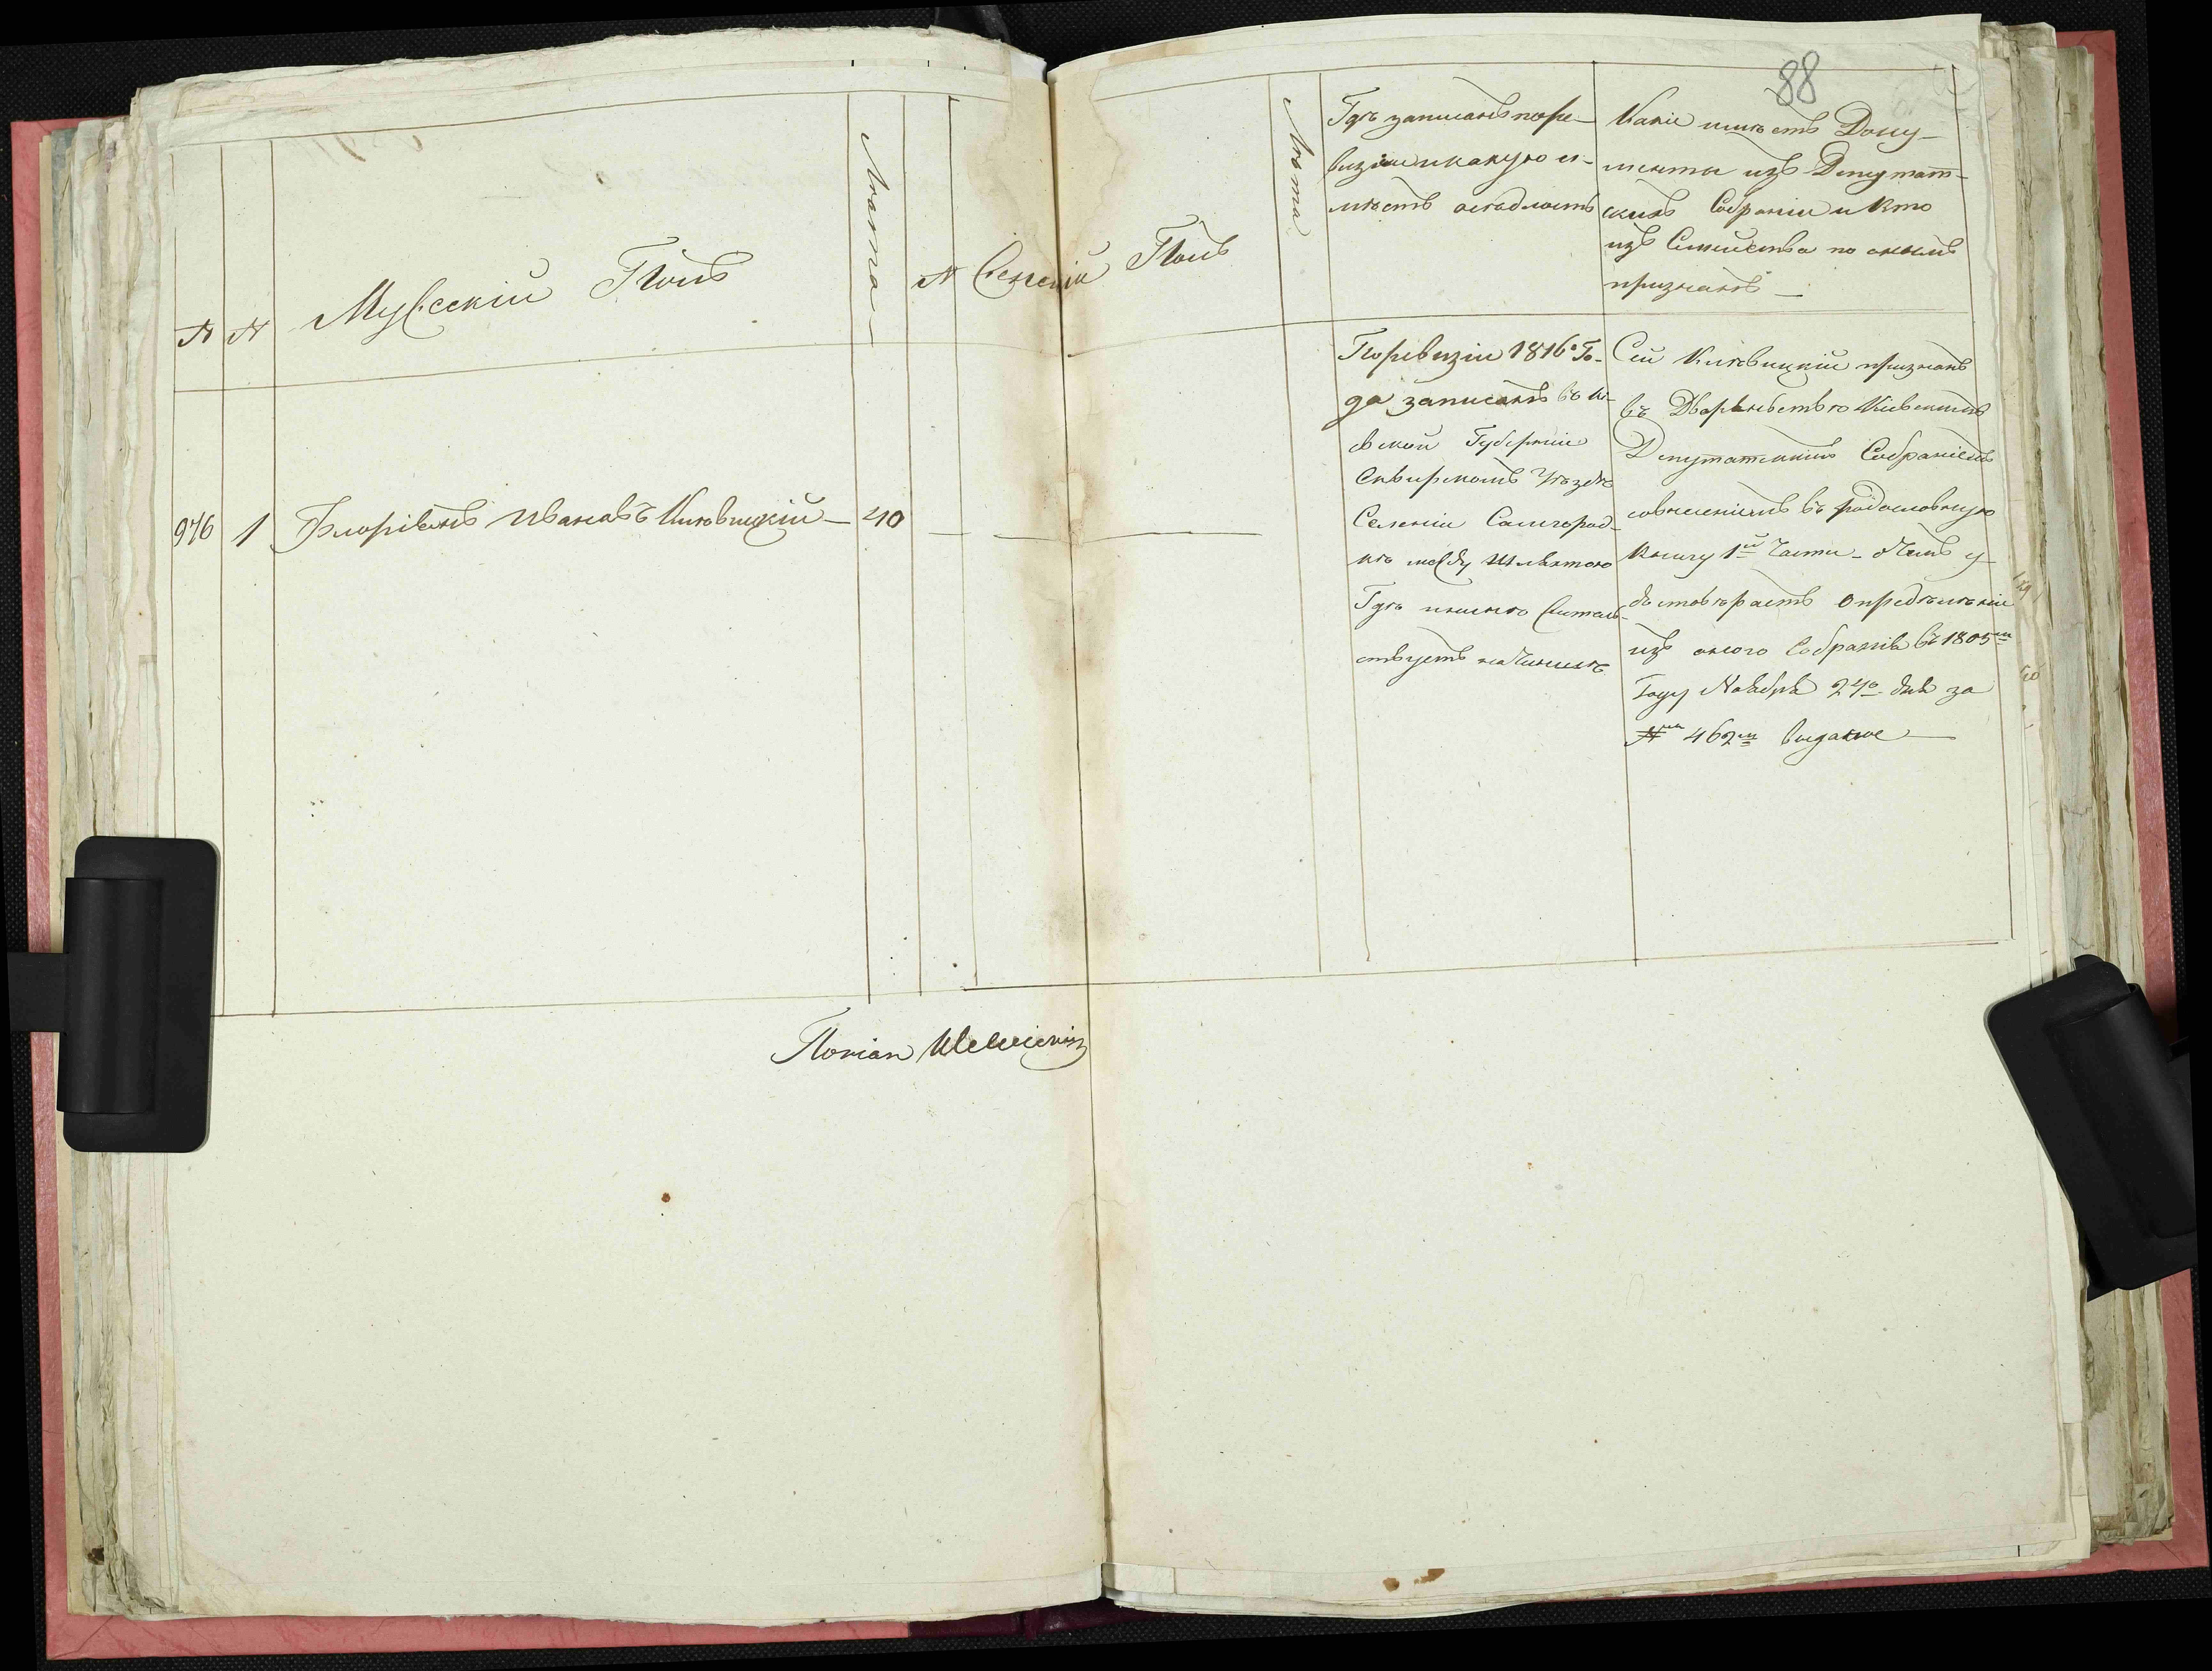 88
№ № Мужескій Полъ Лѣта № Женскій Полъ Лѣта
Гдѣ записанъ по ре-
визіи и какую и-
мѣетъ осѣдлость
Какіе имѣетъ Доку-
менты изъ Депутат-
скихъ Собраніи и кто
изъ Семейства по онымъ
признанъ
976 1 Флоріянъ Ивановъ 40
По ревизіи 1816го Го-
да записанъ въ Кі-
евской Губерніи
Сквирскомъ Уѣздѣ
Селеніи Самгород-
кѣ между Шляхтою
Гдѣ нынѣ Житель-
ствуетъ на Чиншѣ
Сей признанъ
въ Дворянствѣ Кіевскимъ
Депутатскимъ Собраніемъ
совнесеніемъ въ родословную
книгу 1й Части - о чемъ у-
достовѣряетъ Опредѣленіе
изъ оного Собранія въ 1805м
Году Ноября 24о дня за
№м 462м выданое
Florian